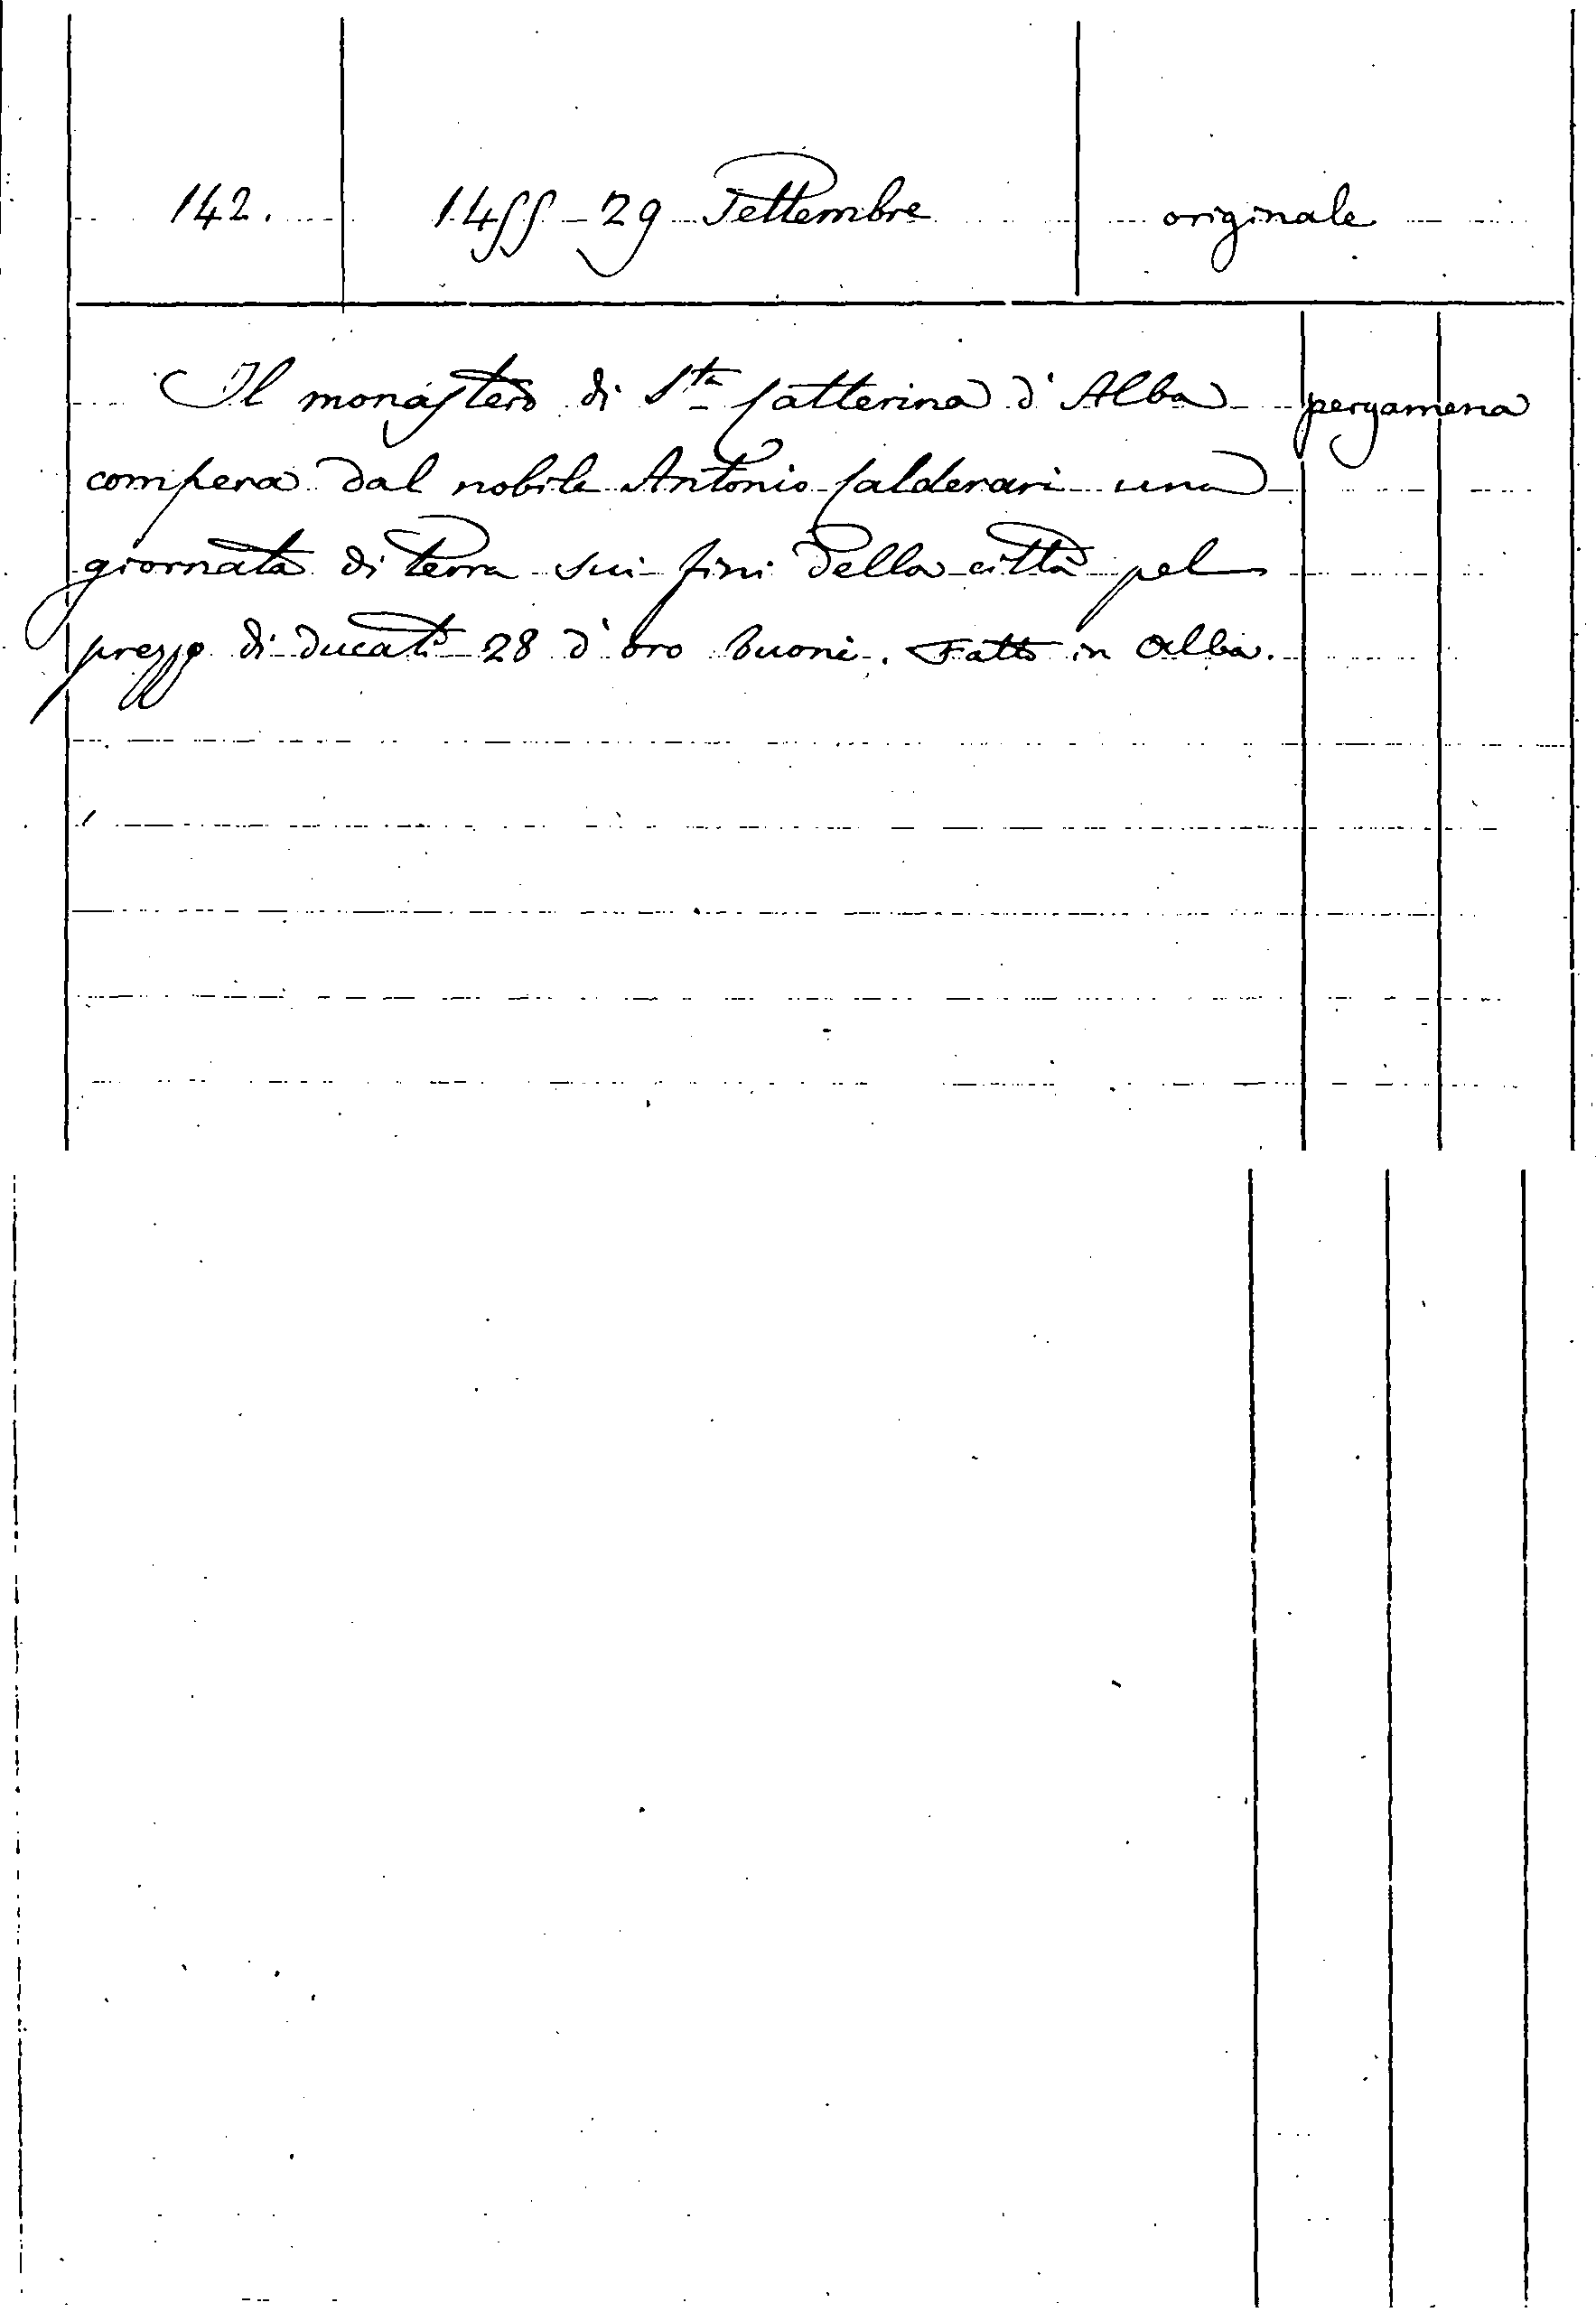 142. 1455 - 29 Settembre originale
Il monastero di S.ta Catterina d'Alba pergamena
compera dal nobile Antonio Calderari una
giornata di terra sui fini della città pel
prezzo di ducati 28 d'oro buoni. Fatto in Alba.